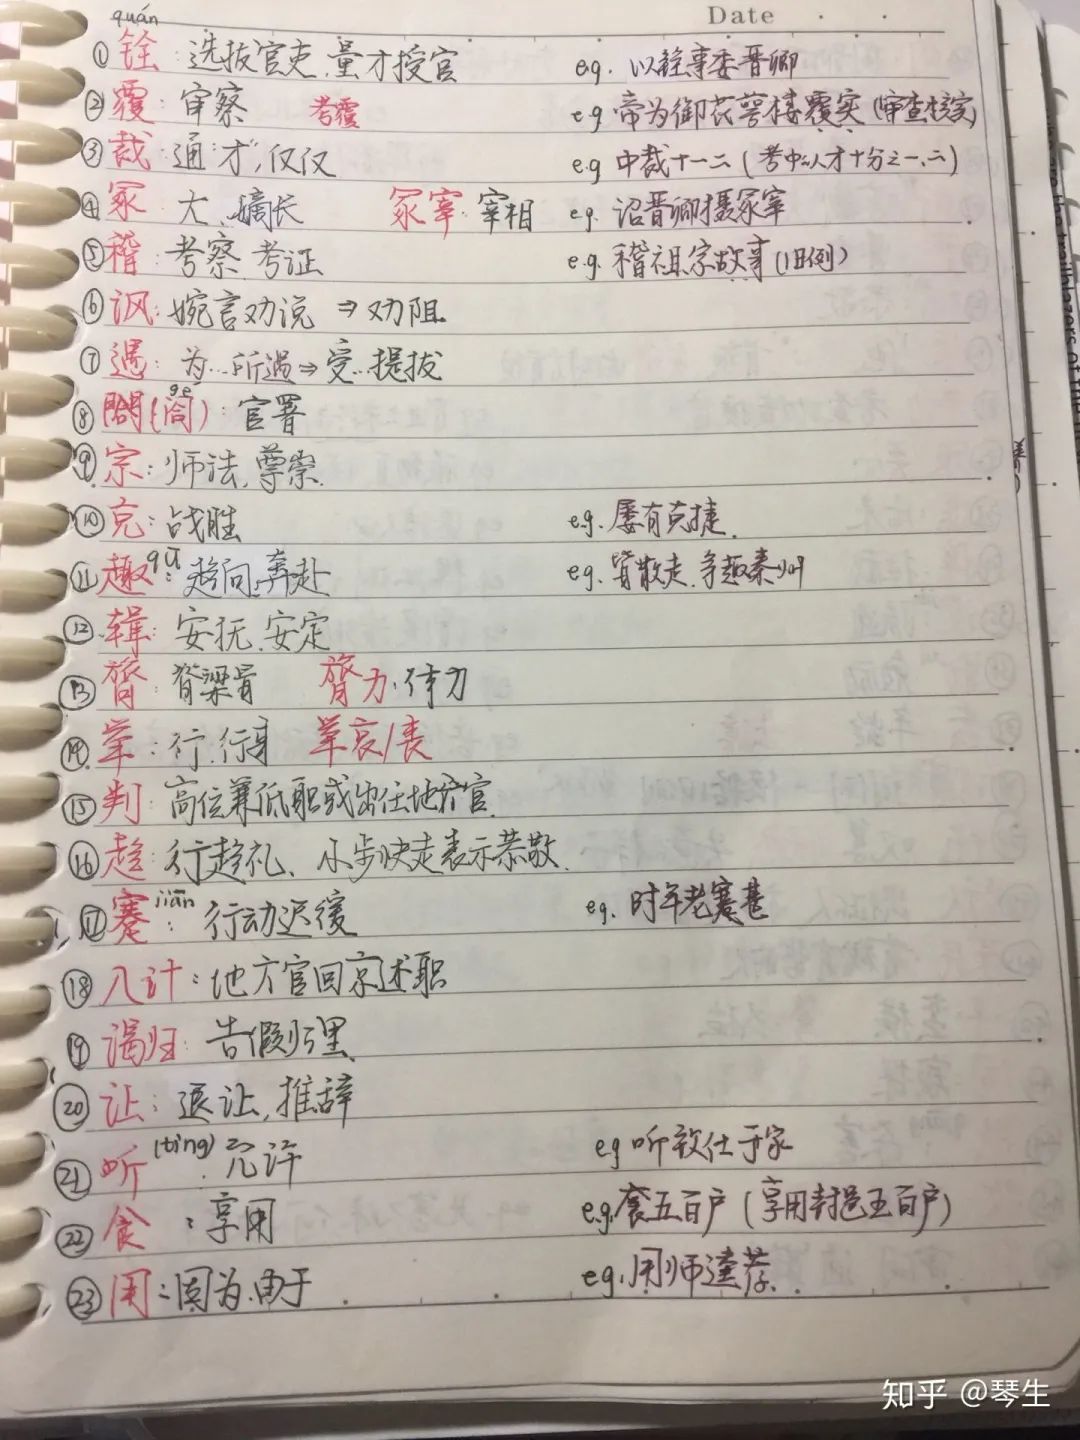 Date
quán
①铨：选拔官吏，量才授官 e.g. 以铨事委晋卿
②覆：审察 考覆 e.g 帝为御花萼楼覆实（审查核实）
③裁：通“才”，仅仅 e.g 中裁十一二（考中人才十分之一、二）
④冢 大、嫡长 冢宰：宰相 e.g. 诏晋卿摄冢宰
⑤稽：考察，考证 e.g. 稽祖宗故事（旧例）
⑥讽：婉言劝说 ⇒ 劝阻
⑦遇：为…所遇⇒受…提拔
gé
⑧閤(阁)：官署
⑨宗：师法，尊崇
⑩克：战胜 e.g. 屡有克捷.
⑪趣qū：趋向，奔赴 e.g. 皆散走，争趣秦州
⑫辑：安抚，安定
⑬膂：脊梁骨 膂力：体力
⑭举：行，行事 举哀/丧
⑮判：高位兼低职或出任地方官
⑯趋：行趋礼、小步快走表示恭敬.
⑰蹇jiǎn：行动迟缓 e.g. 时年老蹇甚
⑱入计：地方官回京述职
⑲谒归：告假归里
⑳让：退让，推辞
㉑听(tìng)：允许 e.g 听致仕于家
㉒食：享用 e.g.食五百户（享用封邑五百户）
㉓用：因为，由于 e.g.用师逵荐.
知乎 @琴生